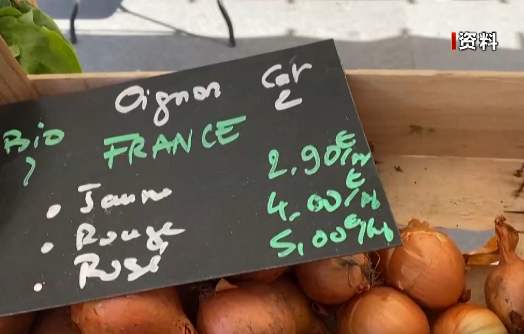 资料
Oignon Cat 2
Bio FRANCE
• Jaune 2.90€/
• Rouge 4,00€/
• Rosé 5,00€/kg